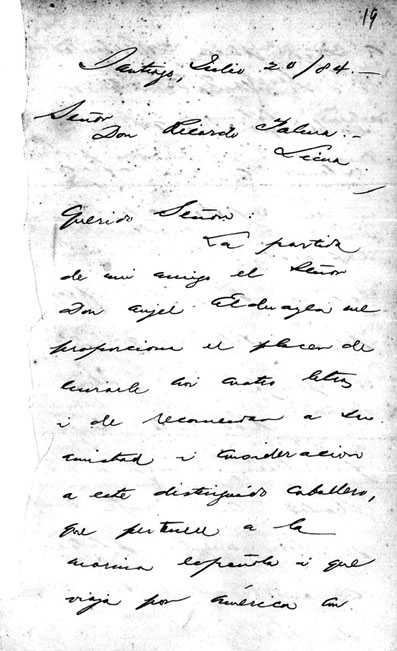 19
Santiago, Julio 20/84.—
Señor
Don Ricardo Palma.—
Lima
Querido Señor:
La partida
de mi amigo el Señor
Don Anjel me
proporciona el placer de
enviarle mis cuatro letras
i de recomendar a su
amistad i consideracion
a este distinguido caballero,
que pertenece a la
marina española i que
viaja por América con